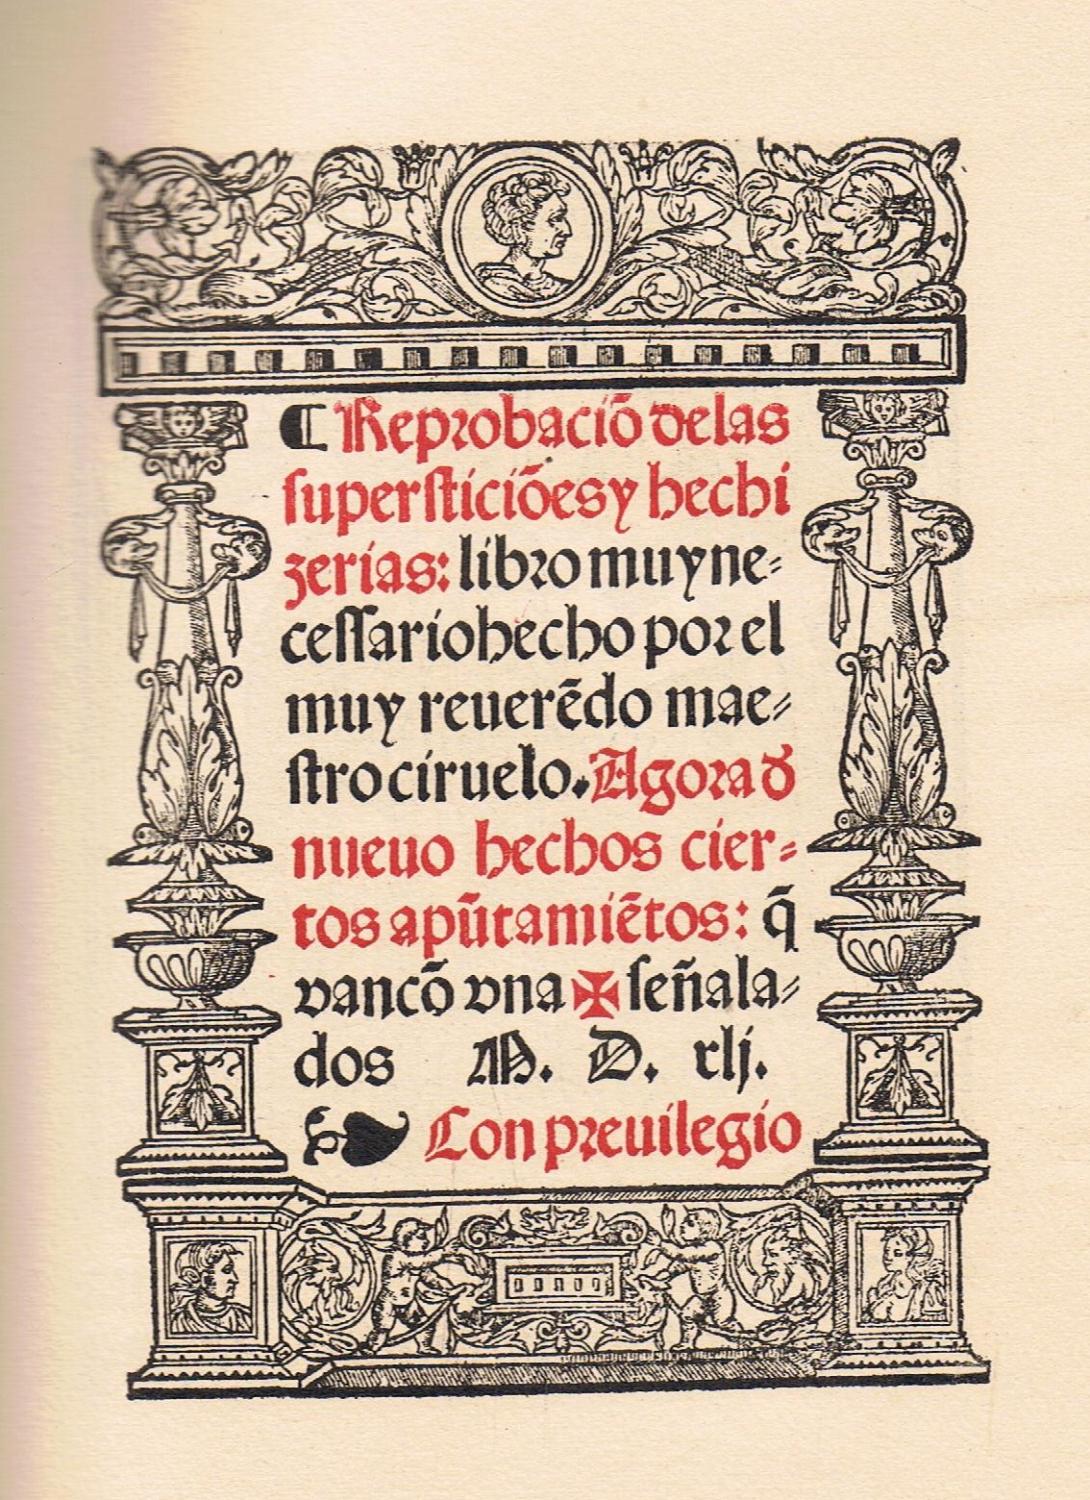 ¶ Reprobaciō delas
supersticiōes y hechi
zerias: libro muy ne-
cessario hecho por el
muy reuerēdo mae-
stro ciruelo. Agora d̄
nueuo hechos cier-
tos apūtamiētos: q̄
van cō vna ✠ señala-
dos M. D. xlj.
❧ Con preuilegio